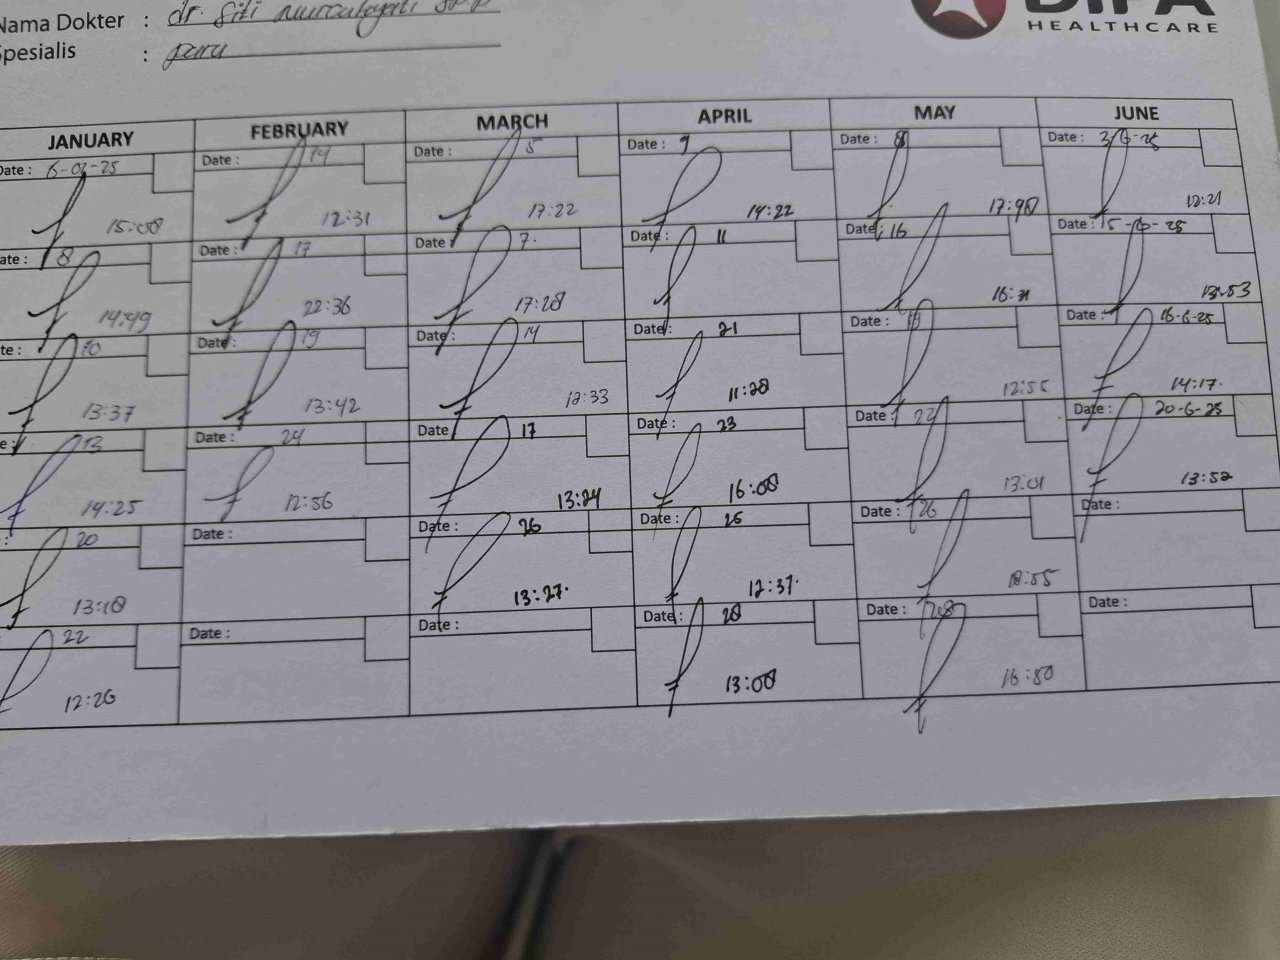 Nama Dokter : dr. Siti
Spesialis : paru
DIPA
HEALTHCARE
JANUARY FEBRUARY MARCH APRIL MAY JUNE
Date: 6-01-25 Date: 14 Date: 5 Date: 9 Date: 8 Date: 3/6-25
15:08 12:31 17:22 14:22 17:40 12:21
Date: 8 Date: 17 Date: 7. Date: 11 Date: 16 Date: 15-06-25
14:49 22:36 17:28 16:21 12:53
Date: 10 Date: 19 Date: 14 Date: 21 Date: 19 Date: 16-6-25
13:37 13:42 12:33 11:28 12:55 14:17.
Date: 13 Date: 24 Date: 17 Date: 23 Date: 22 Date: 20-6-25
14:25 12:56 13:24 16:08 13:01 13:52
Date: 20 Date: Date: 26 Date: 25 Date: 26 Date:
13:18 13:27. 12:37. 18:55
22 Date: Date: Date: 28 Date: 28 Date:
12:26 13:08 16:50